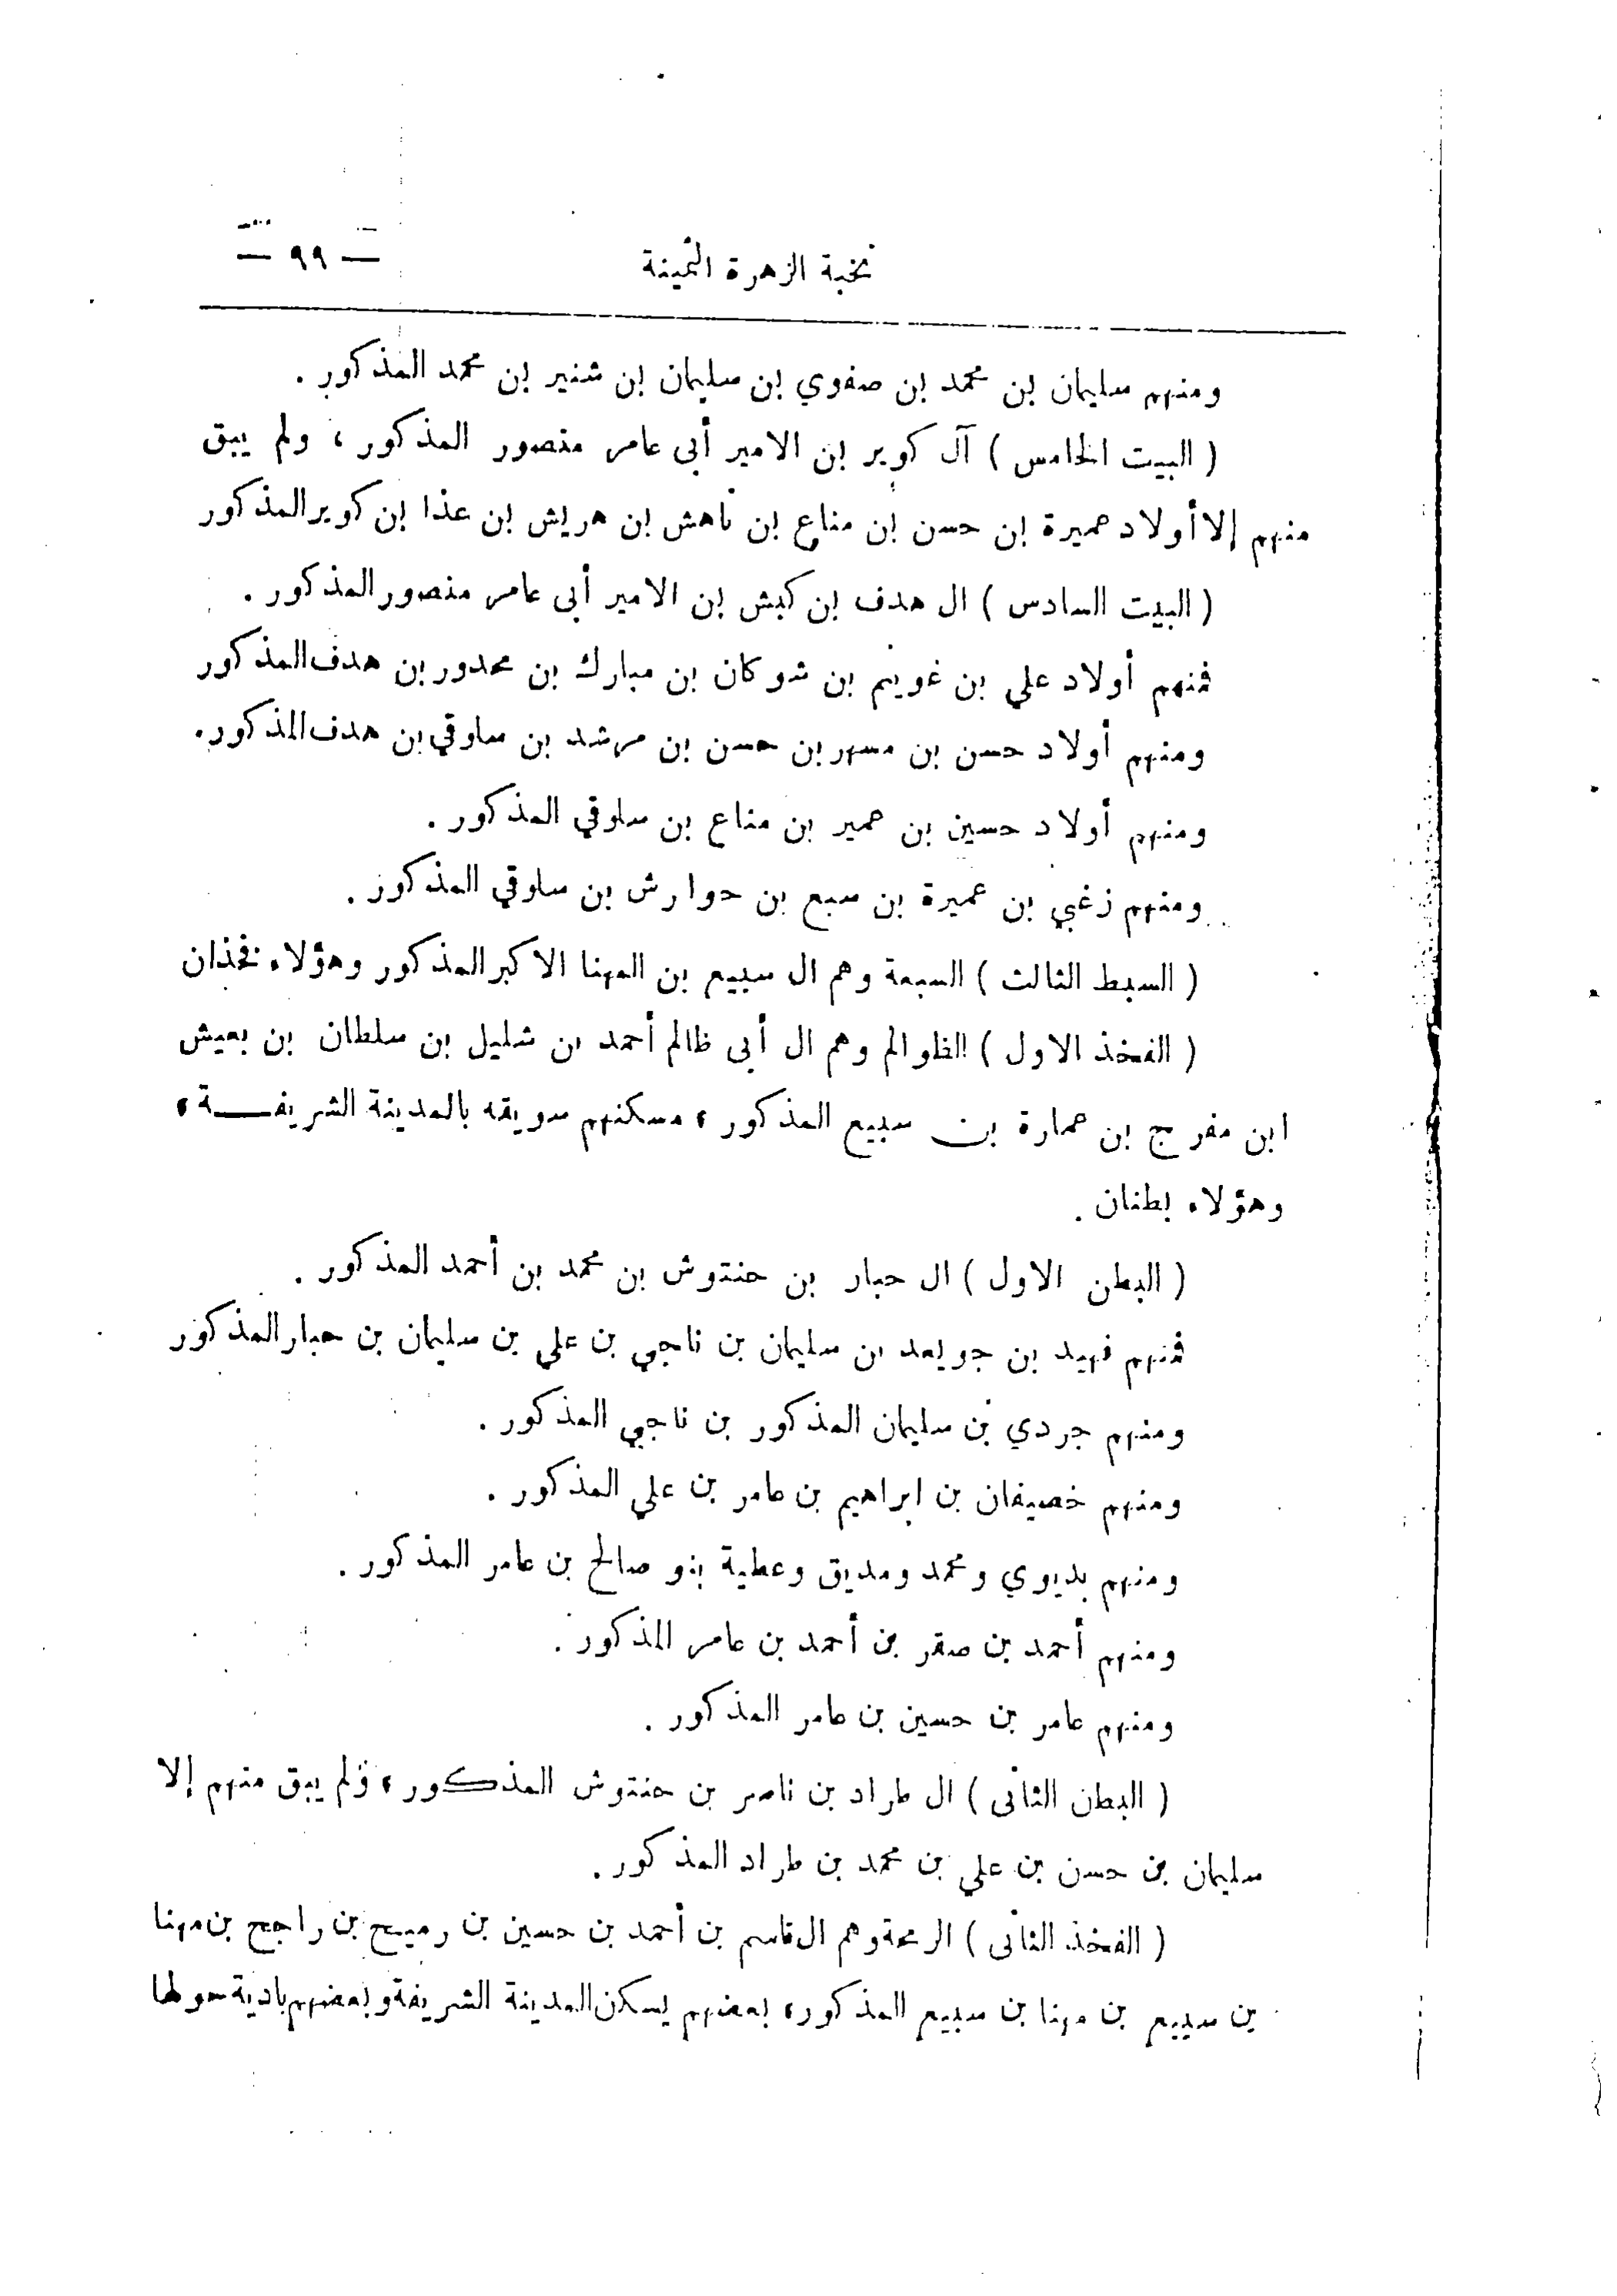 نخبة الزهرة الثمينة
— ٩٩ —
ومنهم سليمان بن محمد بن صفوي بن سليمان بن شنير بن محمد المذكور .
( البيت الخامس ) آل كوير بن الامير أبى عامر منصور المذكور ، ولم يبق
منهم إلا أولاد حميرة بن حسن بن مناع بن ناهش بن هريش بن عذا بن كوير المذكور
( البيت السادس ) ال هدف بن كبش بن الامير أبى عامر منصور المذكور .
فمنهم أولاد علي بن غويم بن شوكان بن مبارك بن محدور بن هدف المذكور
ومنهم أولاد حسن بن مسهر بن حسن بن مرشد بن سلوقي بن هدف المذكور .
ومنهم أولاد حسين بن حمير بن مناع بن سلوقي المذكور .
ومنهم زغبي بن عميرة بن سبع بن حوارش بن سلوقي المذكور .
( السبط الثالث ) السبعة وهم ال سبيع بن المهنا الاكبر المذكور وهؤلاء فخذان
( الفخذ الاول ) الظوالم وهم ال أبى ظالم أحمد بن شليل بن سلطان بن بعيش
ابن مفرج بن عمارة بن سبيع المذكور ، مسكنهم سويقه بالمدينة الشريفة ،
وهؤلاء بطنان .
( البطن الاول ) ال حبار بن حنتوش بن محمد بن أحمد المذكور .
فمنهم فهيد بن جويعد بن سليمان بن ناجي بن علي بن سليمان بن حبار المذكور
ومنهم جردي بن سليمان المذكور بن ناجي المذكور .
ومنهم خصيفان بن ابراهيم بن عامر بن علي المذكور .
ومنهم بديوي ومحمد ومديق وعطية بنو صالح بن عامر المذكور .
ومنهم أحمد بن صقر بن أحمد بن عامر المذكور .
ومنهم عامر بن حسين بن عامر المذكور .
( البطن الثانى ) ال طراد بن ناصر بن حنتوش المذكور ، ولم يبق منهم إلا
سليمان بن حسن بن علي بن محمد بن طراد المذكور .
( الفخذ الثانى ) الرمحة وهم ال قاسم بن أحمد بن حسين بن رميح بن راجح بن مهنا
بن سبيع بن مهنا بن سبيع المذكور ، بعضهم يسكن المدينة الشريفة وبعضهم بادية حولها